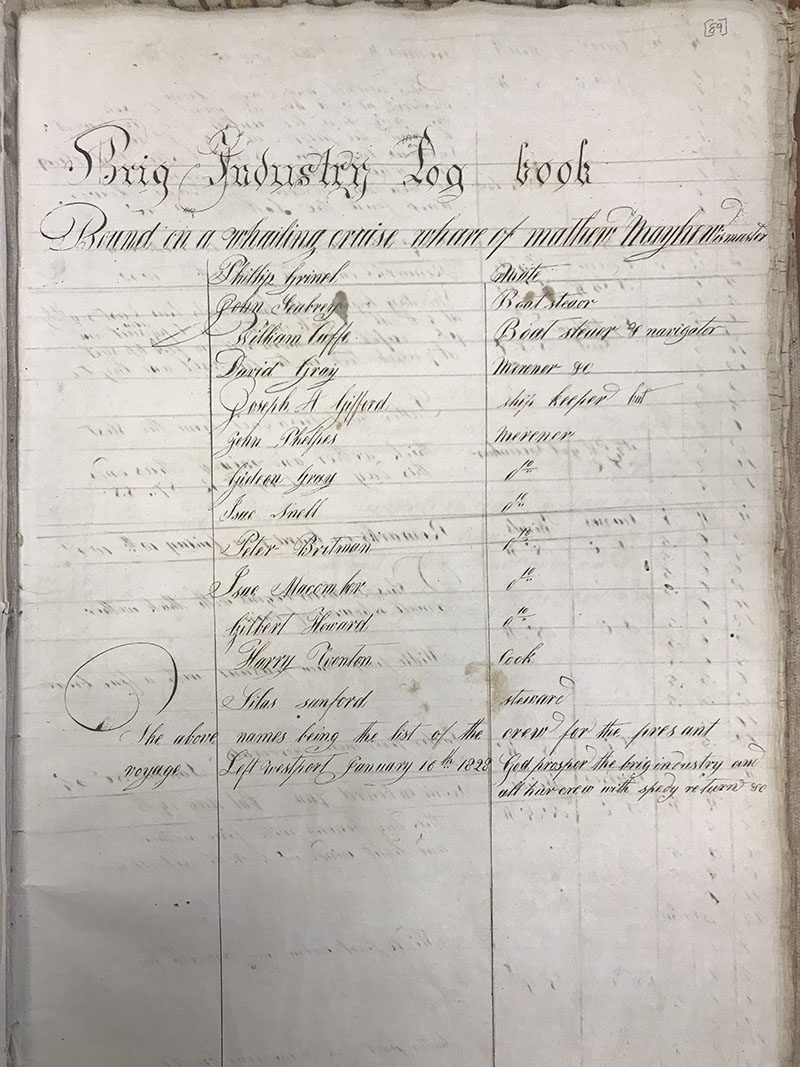 [89]
Brig Industry Log book
Bound on a whailing cruise whare of mathew Mayhew is master
Phillip Grinel Mate
John Seabrey Boat steuor
William Cuffe Boat steuer & navigator
David Gray Merener &c
Joseph A Gifford ship keeper but
John Phelpes Merener
Gideon Gray Do
Isac Snell Do
Peter Britman Do
Isac Macomber Do
Gilbert Howard Do
Harry Cook
Silas sanford steward
The above names being the list of the crew for the presant
voyage Left westport January 10th 1828 God prosper the brig industry and
all hur crew with spedy return &c